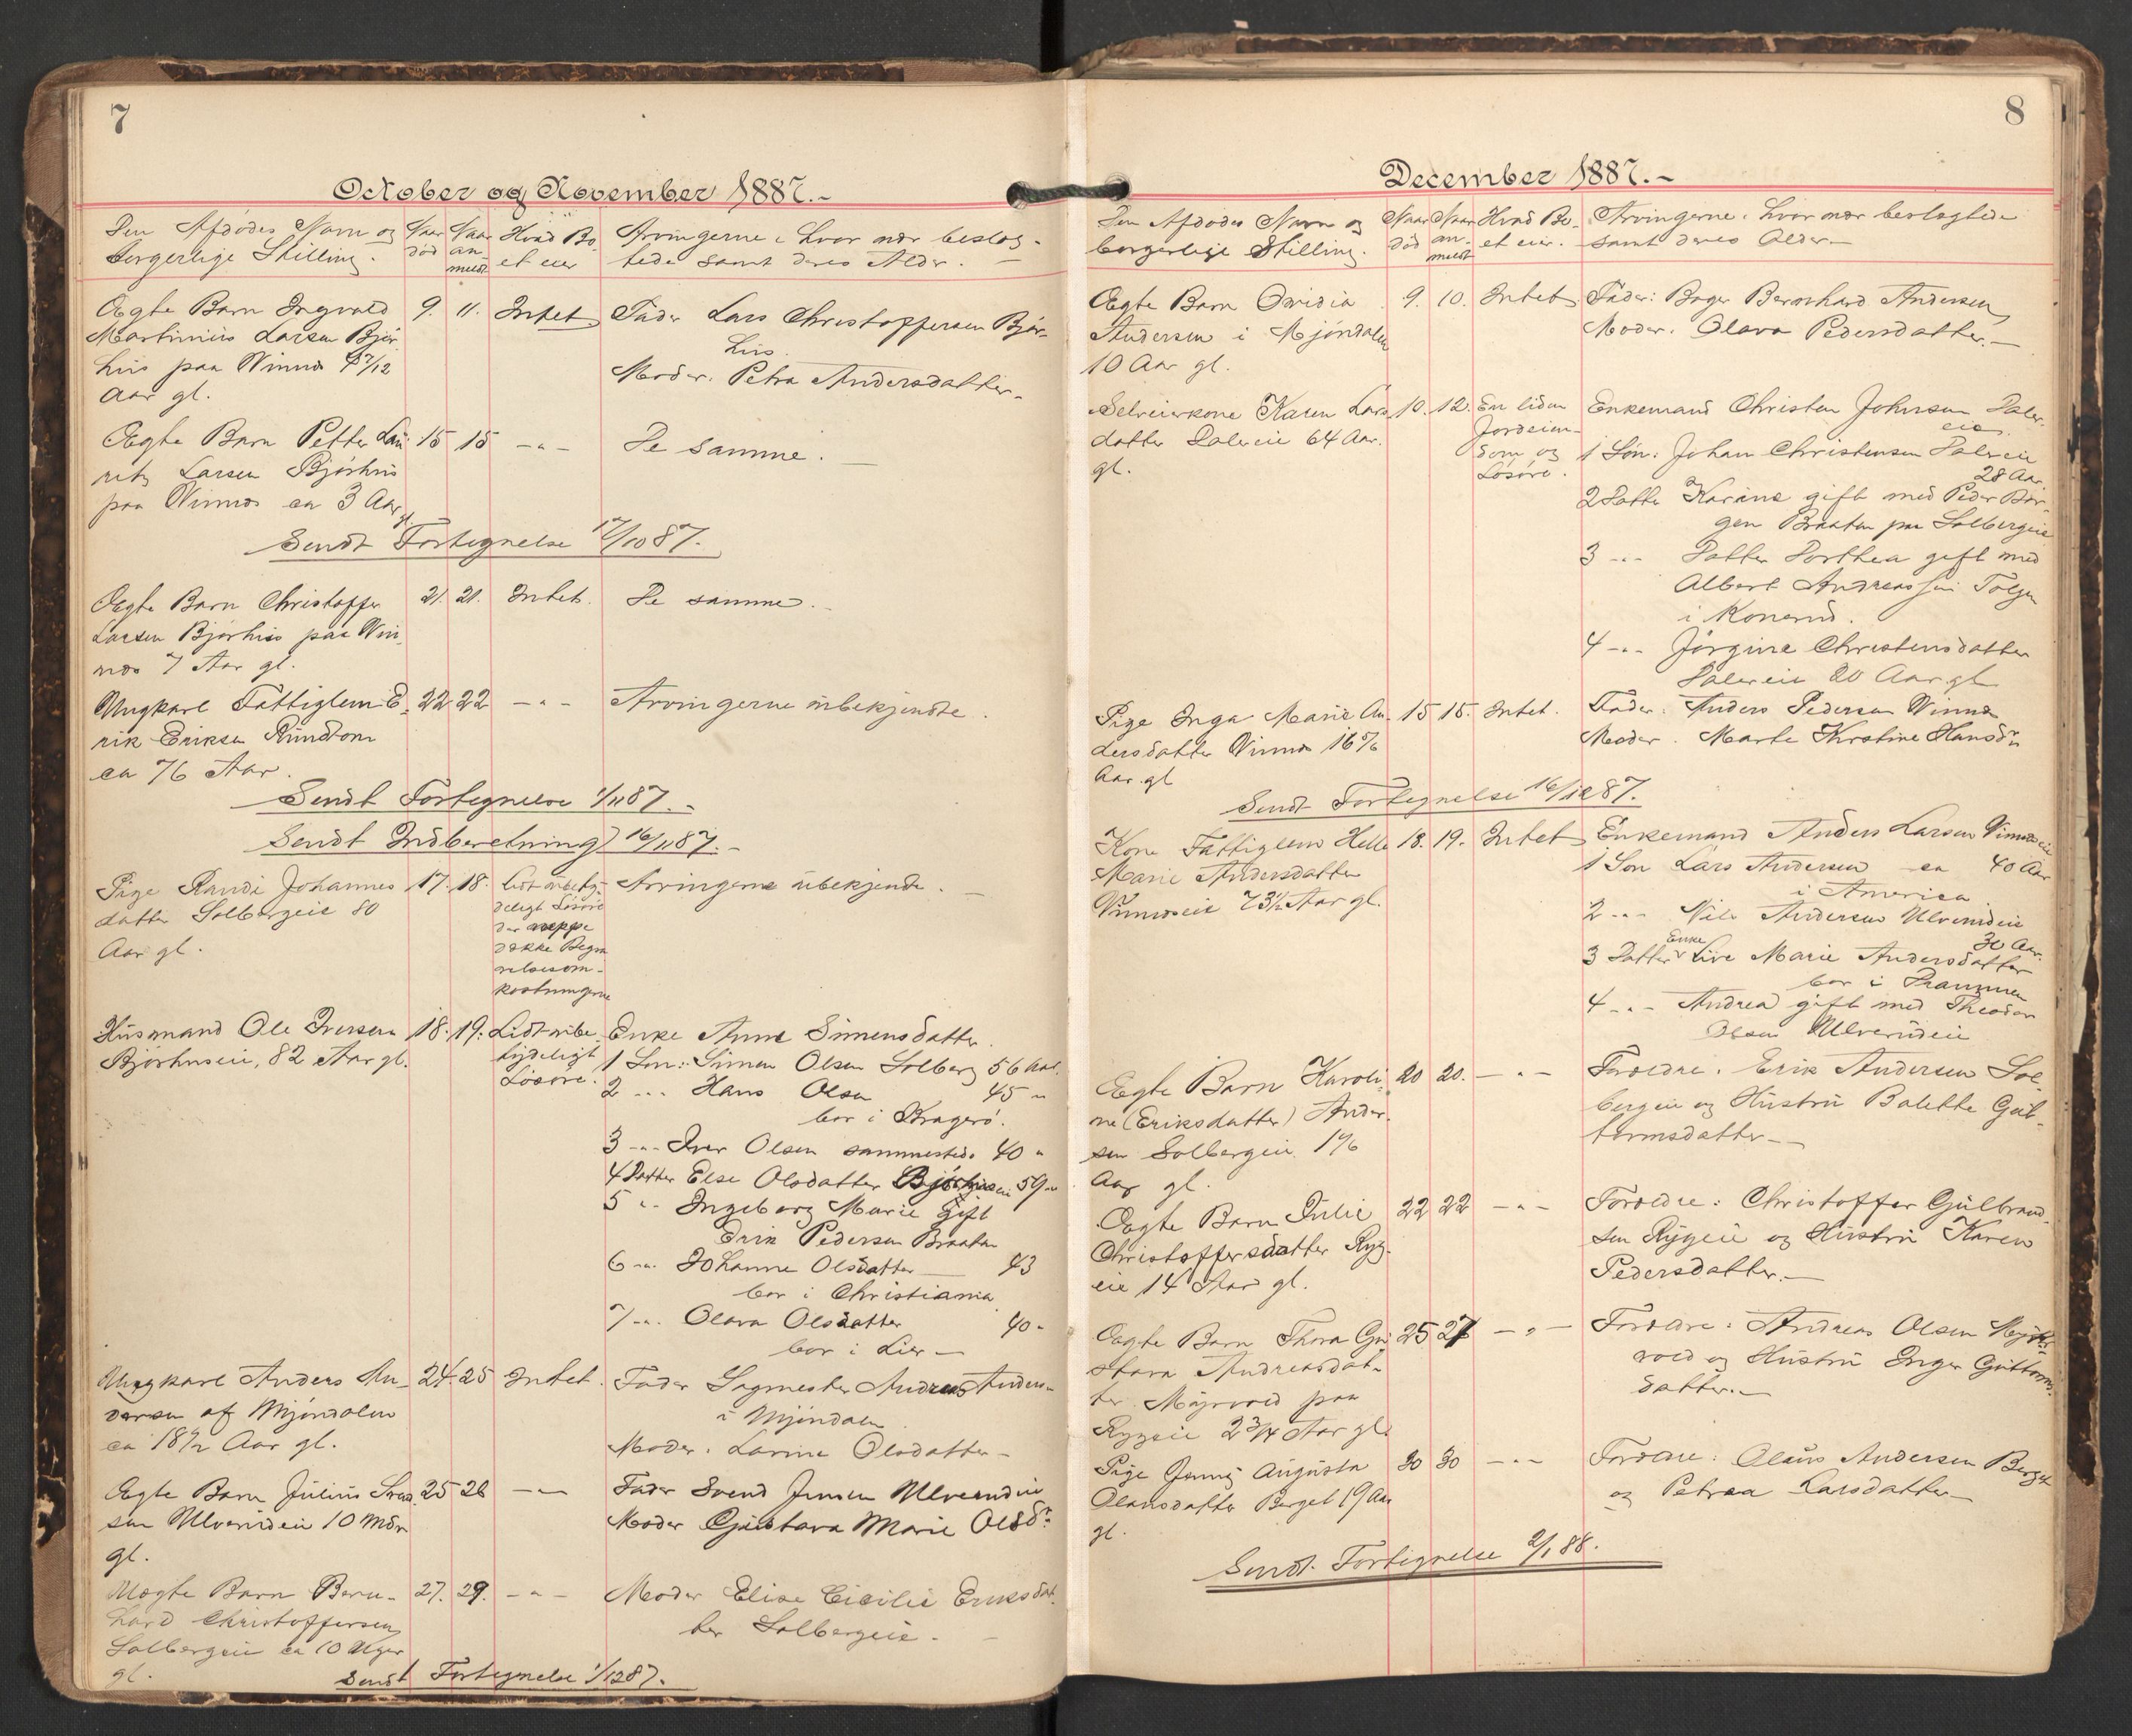 7
October og November 1887.-
Den Afdødes Navn og
borgerlige Stilling.
Naar
død
Naar
an-
meldt
Hvad Bo-
et eier
Arvingerne i hvor nær beslæg-
tede samt deres Alder. -
Ægte Barn Ingvald
Martinius Larsen Bjør
hus paa Vinnes
Aar gl.
9. 11. Intet
Fader Lars Christoffersen Bjør-
hus.
Moder. Petra Andersdatter.
Ægte Barn Petter Lau
ritz Larsen Bjørhus
paa Vinnes ca 3 Aar
gl.
15 15 -"-
De samme. -
Sendt Fortegnelse 17/10 87.
Ægte Barn Christoffer
Larsen Bjørhus paa Vin
nes 7 Aar gl.
21. 21. Intet.
De samme. -
Ungkarl Fattiglem E-
rik Eriksen Rundtom
ca 76 Aar.
22 22 -"-
Arvingerne ubekjendte.
Sendt Fortegnelse 1/11 87.-
Sendt Indberetning 16/11 87.-
Pige Randi Johannes
datter Solbergeie 80
Aar gl.
17. 18.
Lidt ubety-
deligt Løsøre
der neppe
dække Begra
velsesom-
kostningerne
Arvingerne ubekjendte. -
Husmand Ole Iversen
Bjørhuseie, 82 Aar gl.
18. 19.
Lidt ube-
tydeligt
Løsøre.
Enke Anne Simensdatter.
1 Søn: Simen Olsen Solberg 56 Aar.
2 -"- Hans Olsen 45 "
bor i Kragerø.
3 -"- Iver Olsen sammesteds 40 "
4 Datter Else Olsdatter Bjørhuseie 59 "
5 " Ingeborg Marie gift
Erik Pedersen Braaten
6 -"- Johanne Olsdatter 43
bor i Christiania
7 -"- Olava Olsdatter 40 "
bor i Lier -
Ungkarl Anders An-
dersen af Mjøndalen
ca 18 1/2 Aar gl.
24. 25 Intet.
Fader Sagmester Andreas Andersen
i Mjøndalen
Moder. Larine Olsdatter -
Ægte Barn Julius Svend
sen Ulverudeie 10 Mdr
gl.
25 26 -"-
Fader Svend Jensen Ulverudeie
Moder Gustava Marie Olsdr.
Uægte Barn Bern-
hard Christoffersen
Solbergeie ca 10 Uger
gl.
27. 29. -"-
Moder Elise Cicilie Eriksdat
ter Solbergeie. -
Sendt Fortegnelse 1/12 87.
8
December 1887.-
Den Afdødes Navn og
borgerlige Stilling.
Naar
død
Naar
an-
meldt
Hvad Bo-
et eier.
Arvingerne i hvor nær beslægtede
samt deres Alder-
Ægte Barn Ovidia
Andersen i Mjøndalen
10 Aar gl.
9. 10. Intet
Fader: Bager Bernhard Andersen
Moder. Olava Pedersdatter.-
Selveierkone Karen Lars
datter Dalereie 64 Aar.
gl.
10. 12.
En liden
Jordeien-
dom og
Løsøre.
Enkemand Christen Johnsen Daler-
eie.
1 Søn: Johan Christensen Dalereie
28 Aar
2 Datter Karine gift med Peder Bør-
gen Braaten paa Solbergeie
3 -"- Datter Dorthea gift med
Albert Andreassen Tolgen
i Konerud.
4 -"- Jørgine Christensdatter
Dalereie 20 Aar gl
Pige Inga Marie An-
dersdatter Vinnes
Aar gl
15 15. Intet.
Fader. Anders Pedersen Vinnes
Moder. Marte Kirstine Hansdr
Sendt Fortegnelse 16/12 87.
Kone Fattiglem Helle
Marie Andersdatter
Vinneseie 73 1/2 Aar gl.
18. 19. Intet
Enkemand Anders Larsen Vinneseie
1 Søn Lars Andersen ca 40 Aar
i America
2 -"- Nils Andersen Ulverudeie
30 Aar.
3 Datter Enke Live Marie Andersdatter
bor i Drammen
4 -"- Andrea gift med Theodor
Olsen Ulverudeie
Ægte Barn Karoli-
ne (Eriksdatter) Ander-
sen Solbergeie
Aar gl.
20 20. -"-
Forældre. Erik Andersen Sol
bergeie og Hustru Balette Gut-
tormsdatter--
Ægte Barn Julie
Christoffersdatter Ryg-
eie 14 Aar gl.
22 22 -"-
Forældre: Christoffer Gulbrand-
sen Rygeie og Hustru Karen
Pedersdatter.-
Ægte Barn Thora Gu-
stava Andreasdat-
ter Myrvold paa
Rygeie 2 3/4 Aar gl.
25 27 -"-
Forældre: Andreas Olsen Myr-
vold og Hustru Inger Guttorms-
datter.-
Pige Jenny Augusta
Olausdatter Berget 19 Aar
gl.
30 30 -"-
Forældre: Olaus Andersen Berget
og Petrea Larsdatter-
Sendt Fortegnelse 2/1 88.